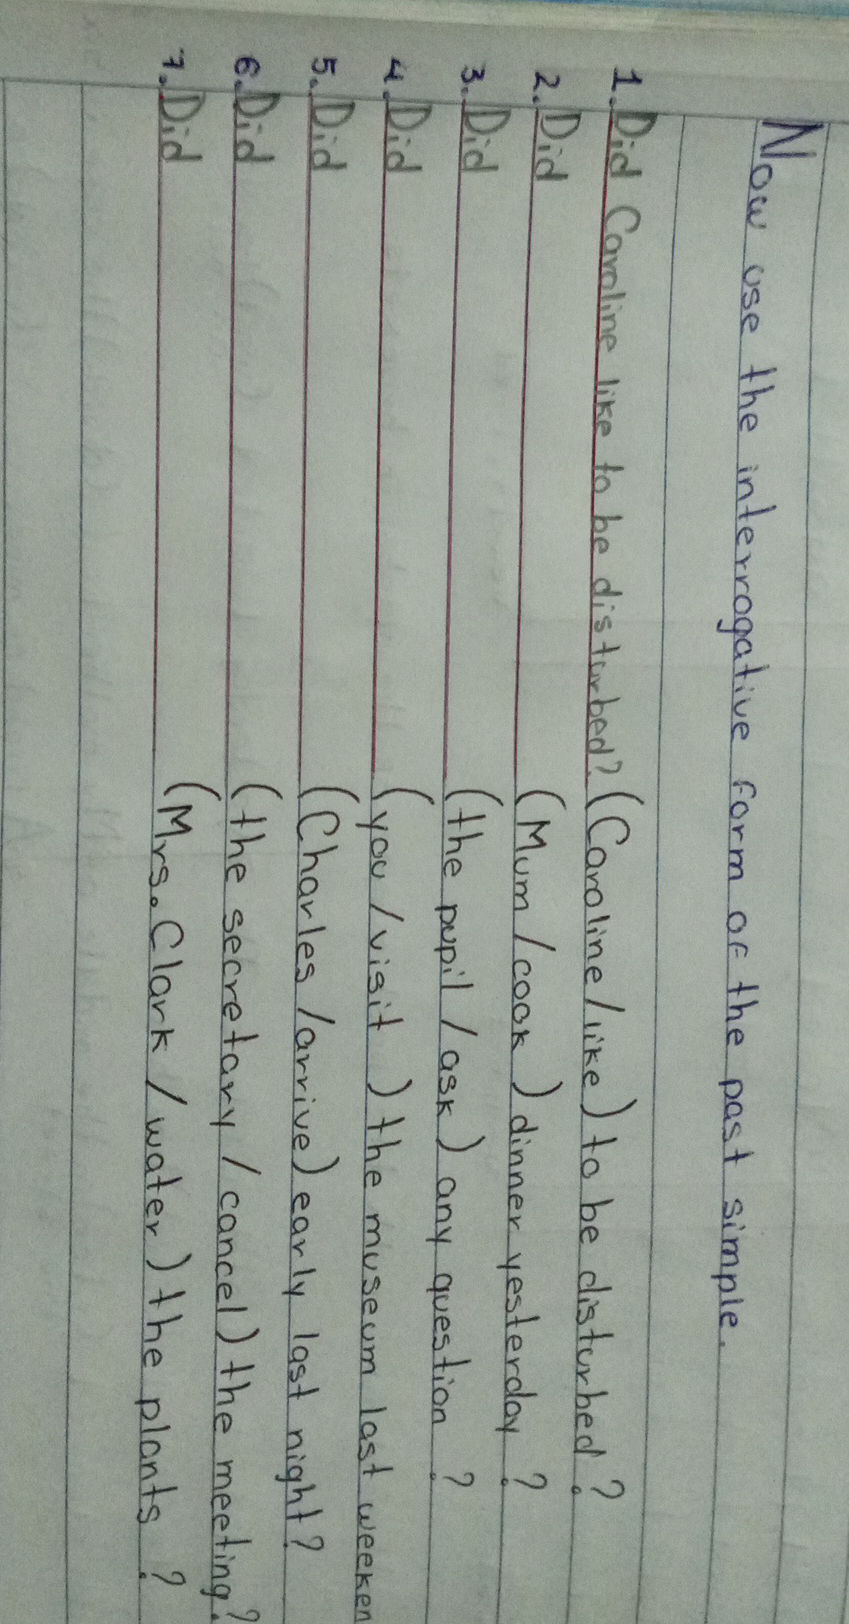 Now use the interrogative form of the past simple.
1. Did Caroline like to be disturbed? (Caroline/like) to be disturbed?
2. Did (Mum/cook) dinner yesterday?
3. Did (the pupil/ask) any question?
4. Did (you/visit) the museum last weeken
5. Did (Charles/arrive) early last night?
6. Did (the secretary/cancel) the meeting?
7. Did (Mrs. Clark/water) the plants?